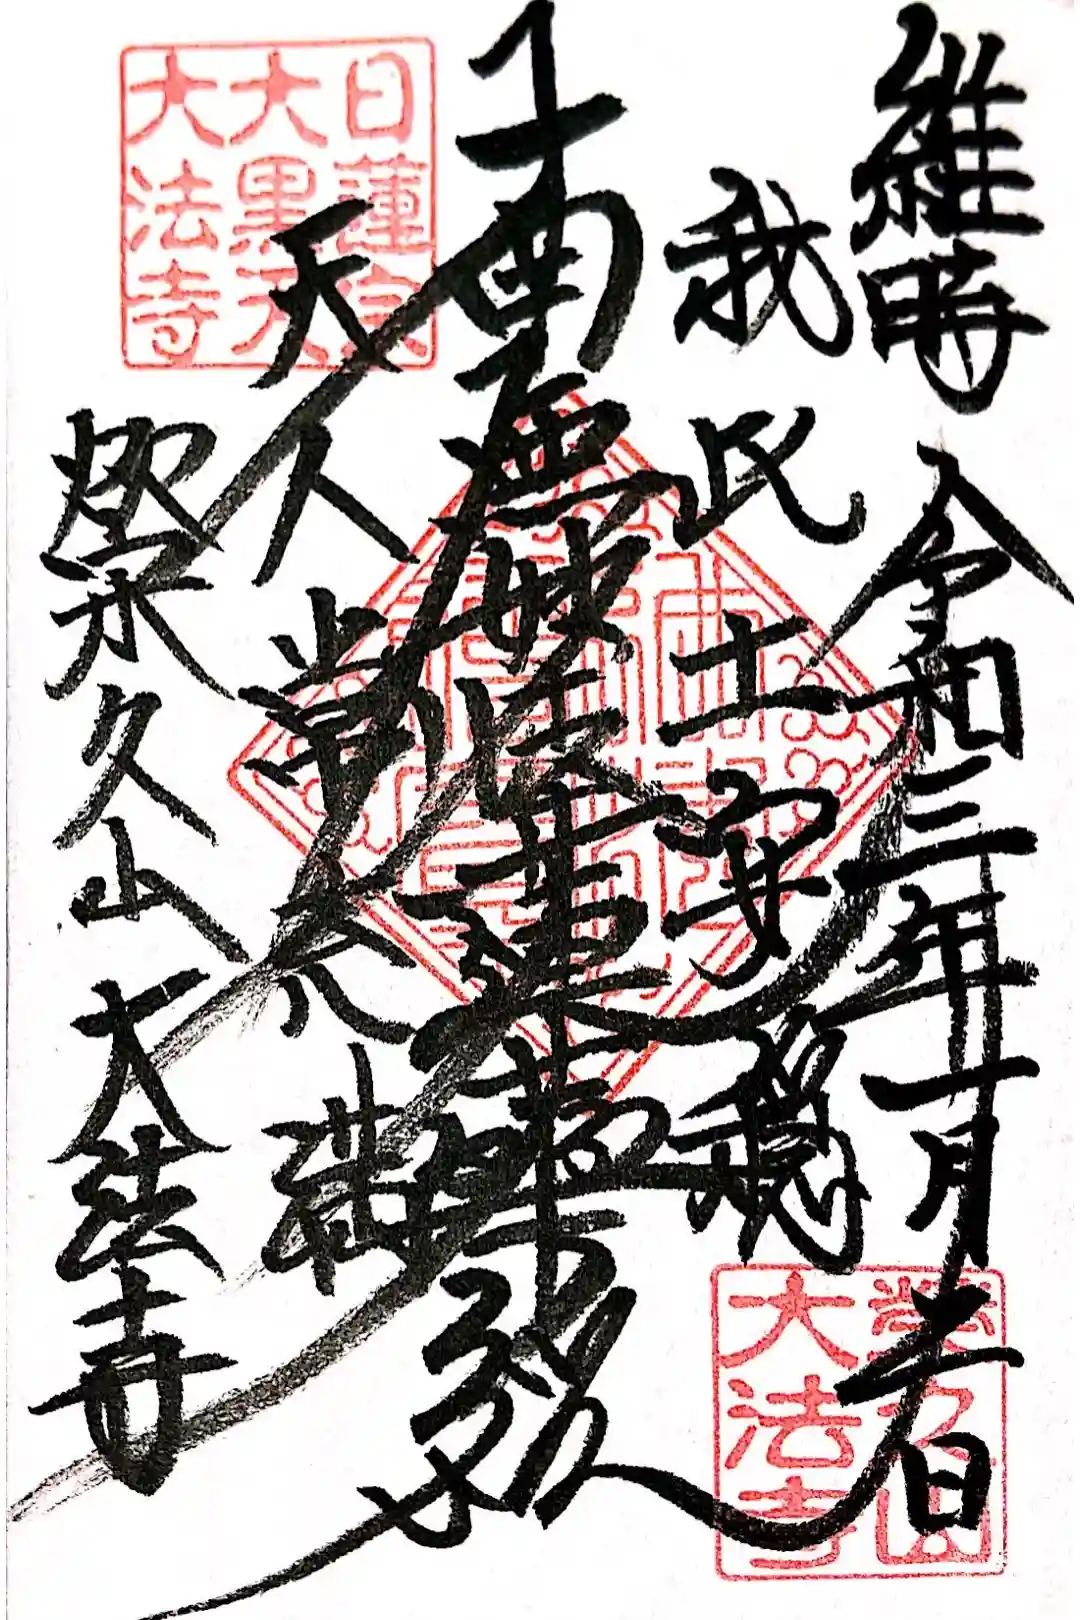 維時 令和三年一月
我此土安穏
南無妙法蓮華経
天人常充満
榮久山 大法寺
日蓮宗
大黒天
大法寺
榮久山
大法寺